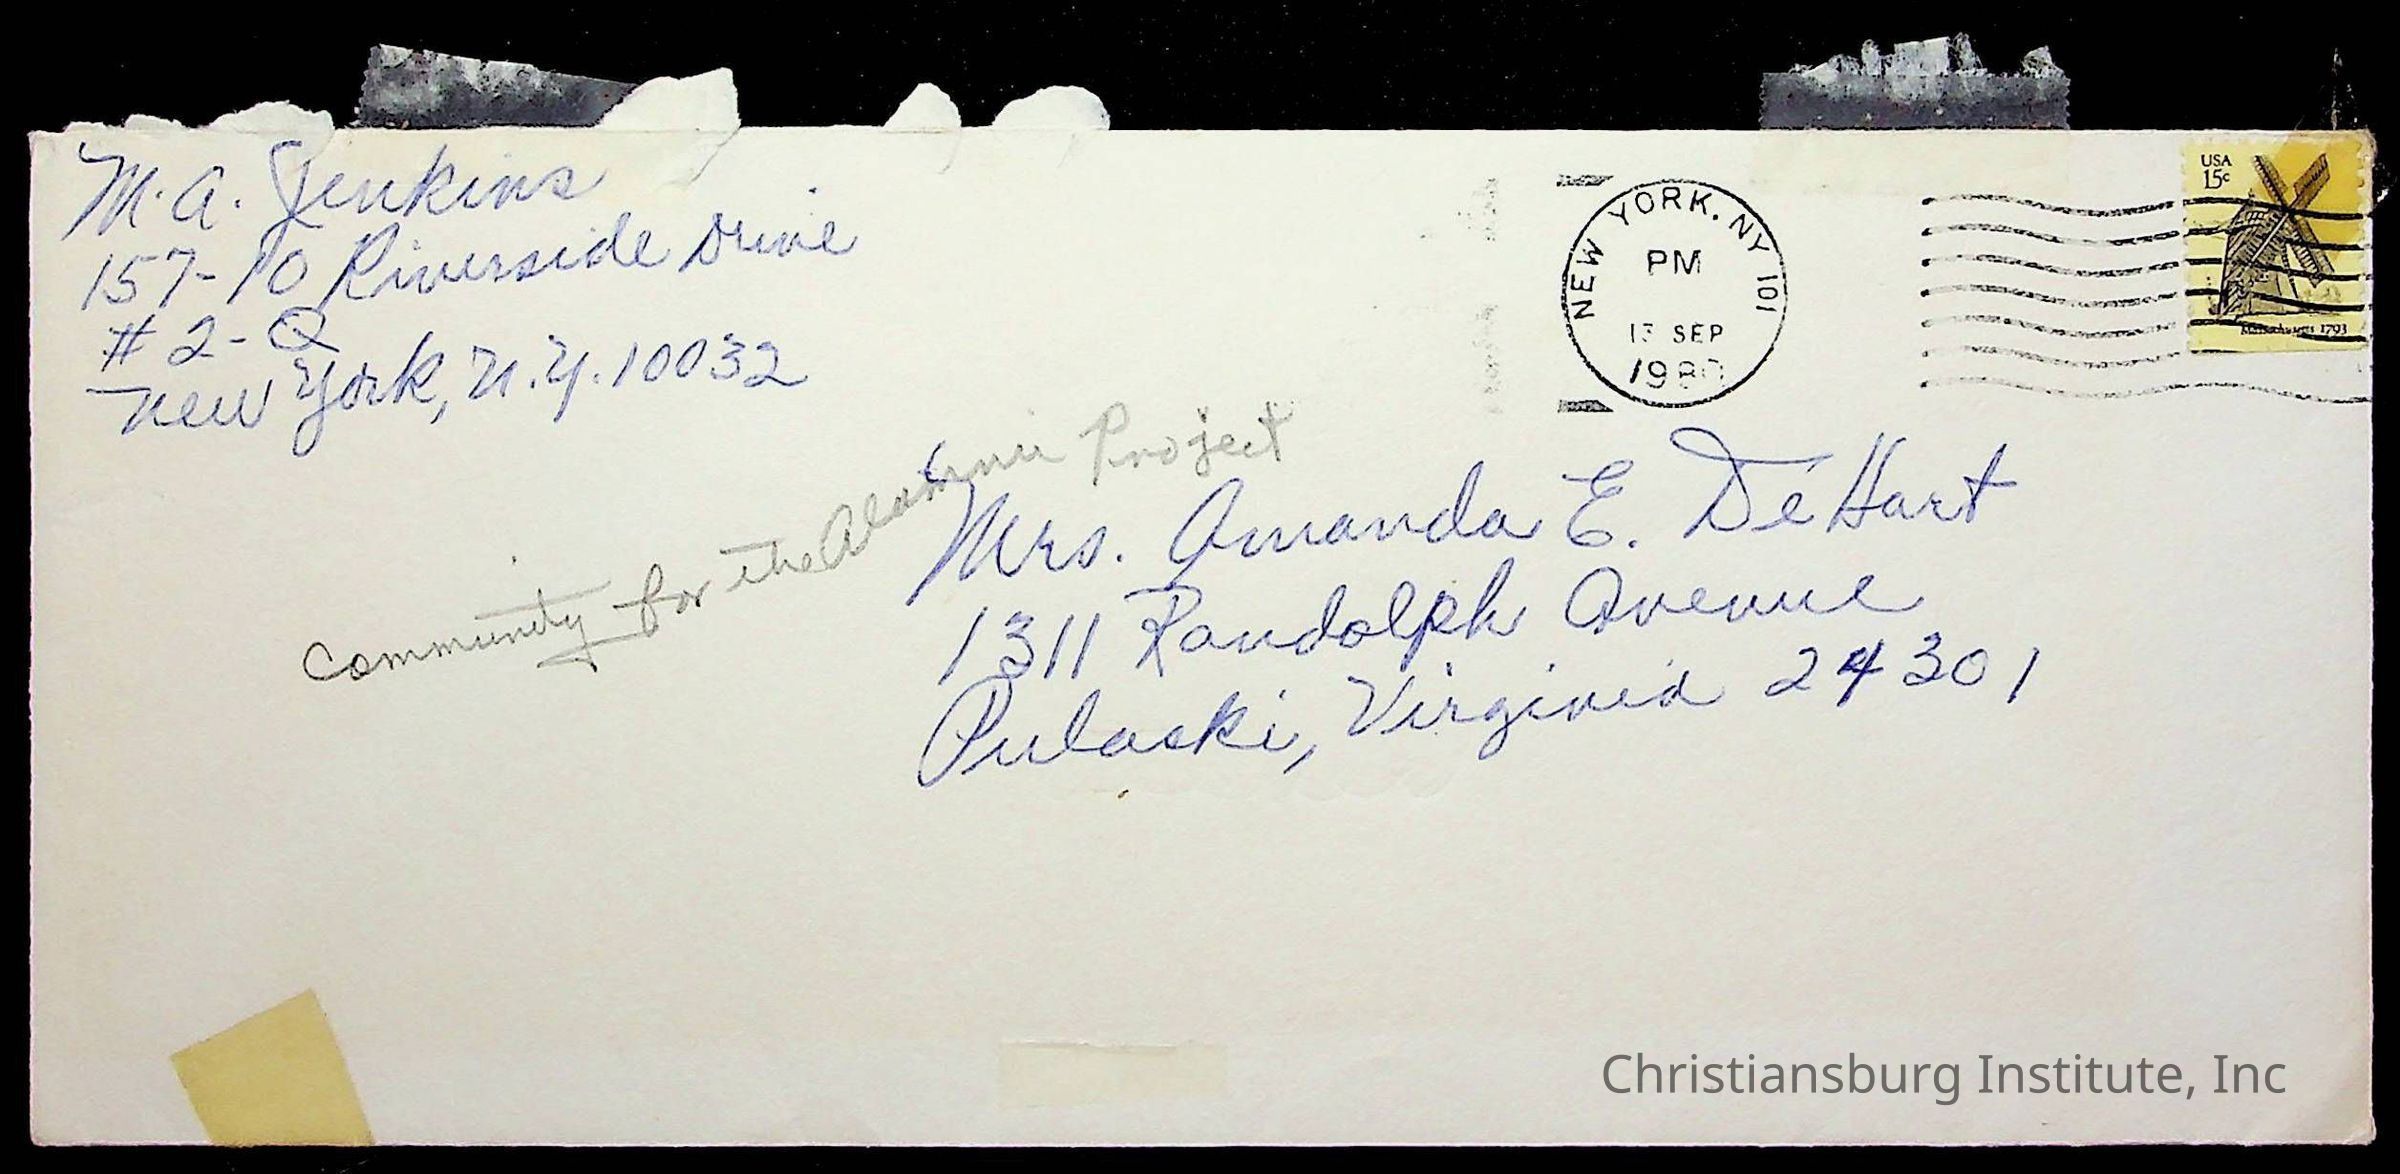 M. A. Jenkins
157-10 Riverside Drive
# 2-Q
New York, N.Y. 10032
NEW YORK, NY 101
PM
SEP
1980
USA
15c
1793
Community for the Alumni Project
Mrs. Amanda E. DeHart
1311 Randolph Avenue
Pulaski, Virginia 24301
Christiansburg Institute, Inc